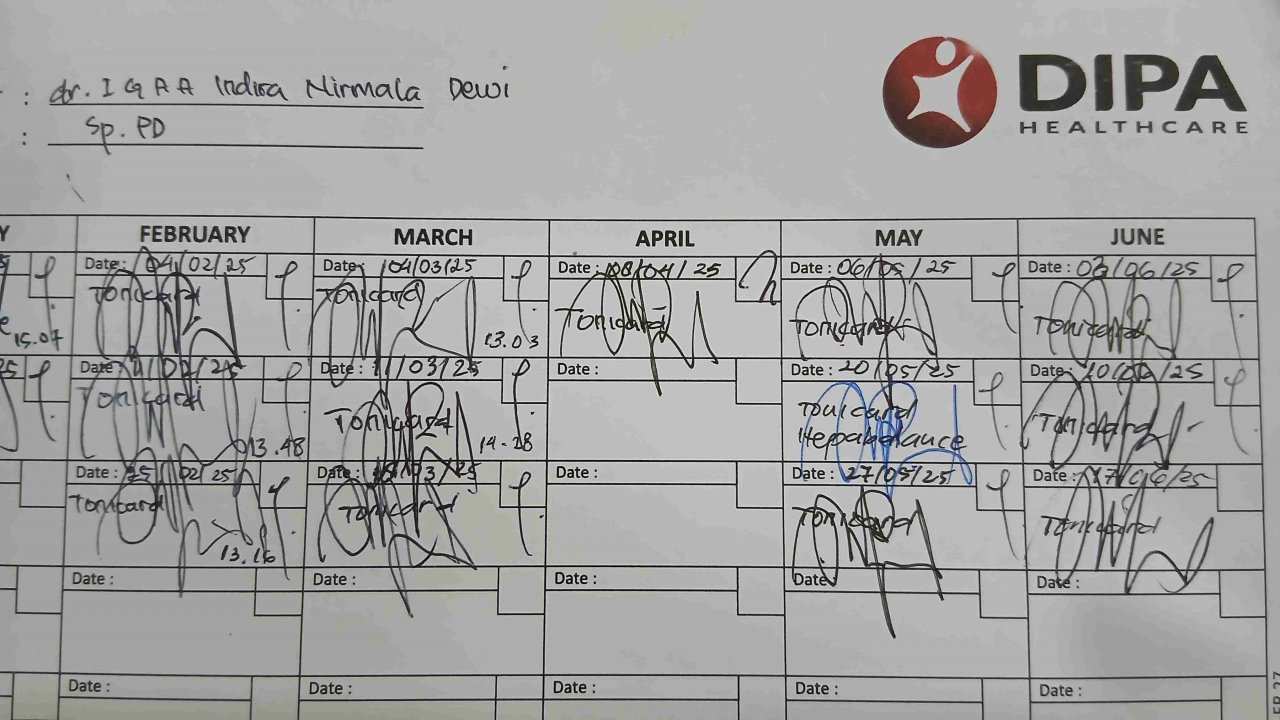 : dr. I G A A Indira Nirmala Dewi
: Sp. PD
DIPA
HEALTHCARE
FEBRUARY MARCH APRIL MAY JUNE
Date : 04/02/25 Date : 04/03/25 Date : 08/04/25 Date : 06/05/25 Date : 03/06/25
Tonicard Tonicard Tonicard Tonicard Tonicard
15.07 13.03
Date : /02/25 Date : 11/03/25 Date : Date : 20/05/25 Date : 10/06/25
Tonicard Tonicard Tonicard Tonicard
Hepabalance
13.48 14.28
Date : 25/02/25 Date : /03/25 Date : Date : 27/05/25 Date : 17/06/25
Tonicard Tonicard Tonicard Tonicard
13.16
Date : Date : Date : Date : Date :
Date : Date : Date : Date : Date :